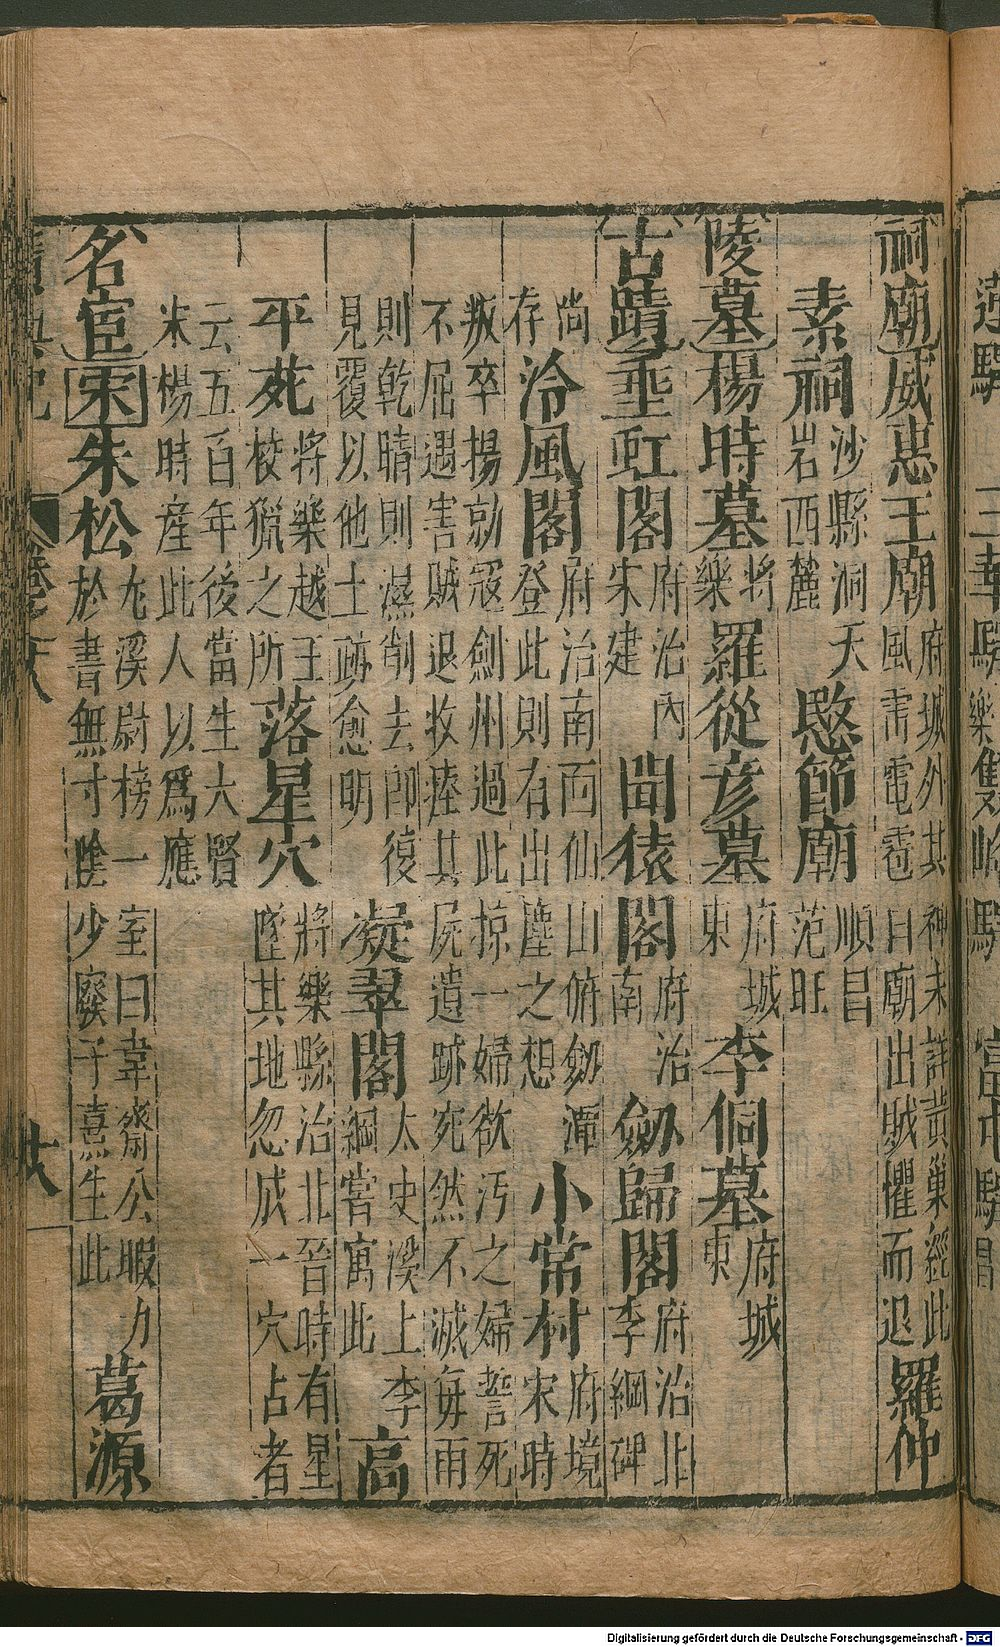 祠廟 威惠王廟 府城外其神未詳黃巢經此風雨電雹日廟出賊懼而退 羅仲
素祠 沙縣洞天岩西麓 愍節廟 順昌范旺
陵墓 楊時墓 將樂 羅從彥墓 府城東 李侗墓 府城東
古蹟 垂虹閣 府治內朱建 聞猿閣 府治南 劒歸閣 府治北李綱碑
尚存 泠風閣 府治南面仙山俯劒潭登此則有出塵之想 小常村 府境宋時
叛卒揚勍寇劍州過此掠一婦欲汚之婦誓死不屈遇害賊退收瘞其屍遺跡宛然不滅每雨
則乾晴則濕削去即復見覆以他土跡愈明 凝翠閣 太史溪上李綱嘗寓此 高
平苑 將樂越王校獵之所 落星穴 將樂縣治北晉時有星墜其地忽成一穴占者
云五百年後當生大賢宋楊時産此人以爲應
名宦 宋 朱松 尤溪尉榜一室曰韋齋公暇力於書無寸隂少廢子熹生此 葛源
Digitalisierung gefördert durch die Deutsche Forschungsgemeinschaft - DFG